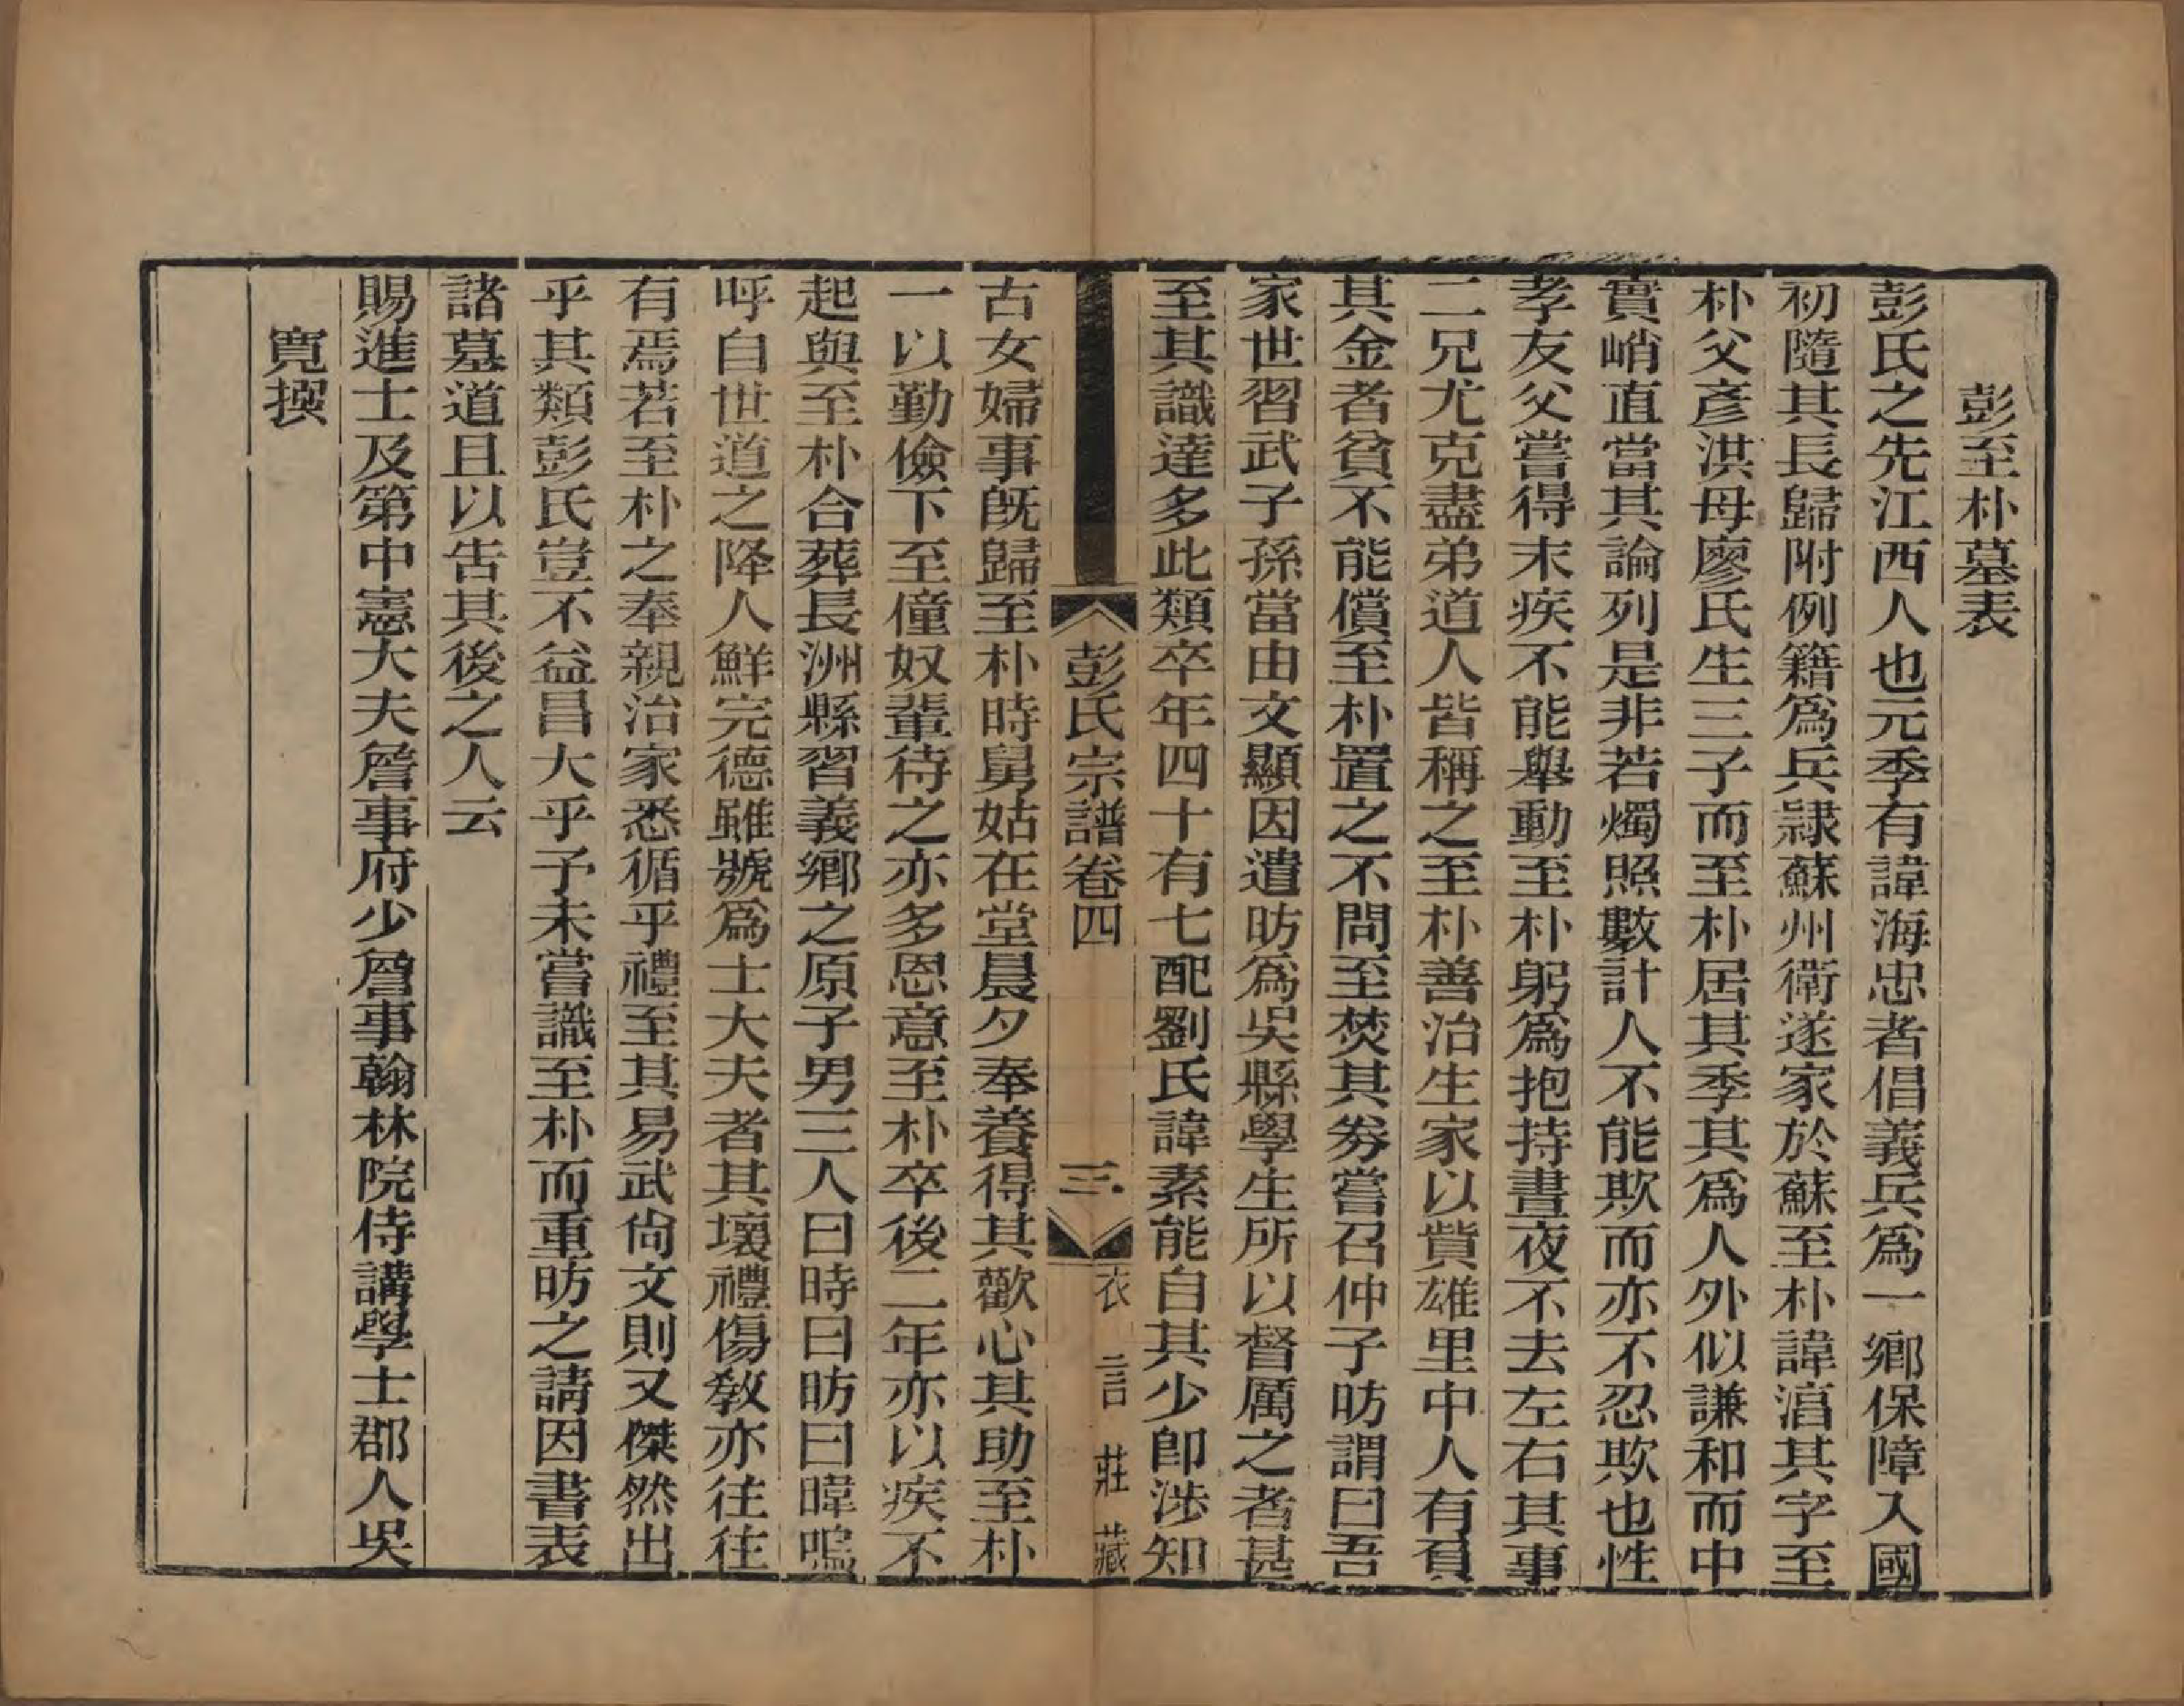 彭至朴墓表
彭氏之先江西人也元季有諱海忠者倡義兵爲一鄉保障入國
初隨其長歸附例籍爲兵隸蘇州衛遂家於蘇至朴諱滀其字至
朴父彥洪母廖氏生三子而至朴居其季其爲人外似謙和而中
實峭直當其論列是非若燭照數計人不能欺而亦不忍欺也性
孝友父嘗得末疾不能舉動至朴躬爲抱持晝夜不去左右其事
二兄尤克盡弟道人皆稱之至朴善治生家以貲雄里中人有負
其金者貧不能償至朴置之不問至焚其券嘗召仲子昉謂曰吾
家世習武子孫當由文顯因遣昉爲吳縣學生所以督厲之者甚
至其識達多此類卒年四十有七配劉氏諱素能自其少卽涉知
彭氏宗譜卷四
三
衣言莊藏
古女婦事旣歸至朴時舅姑在堂晨夕奉養得其歡心其助至朴
一以勤儉下至僮奴輩待之亦多恩意至朴卒後二年亦以疾不
起與至朴合葬長洲縣習義鄉之原子男三人曰時曰昉曰暐嗚
呼自世道之降人鮮完德雖號爲士大夫者其壞禮傷敎亦往往
有焉若至朴之奉親治家悉循乎禮至其易武尙文則又傑然出
乎其類彭氏豈不益昌大乎予未嘗識至朴而重昉之請因書表
諸墓道且以告其後之人云
賜進士及第中憲大夫詹事府少詹事翰林院侍講學士郡人吳
寬撰